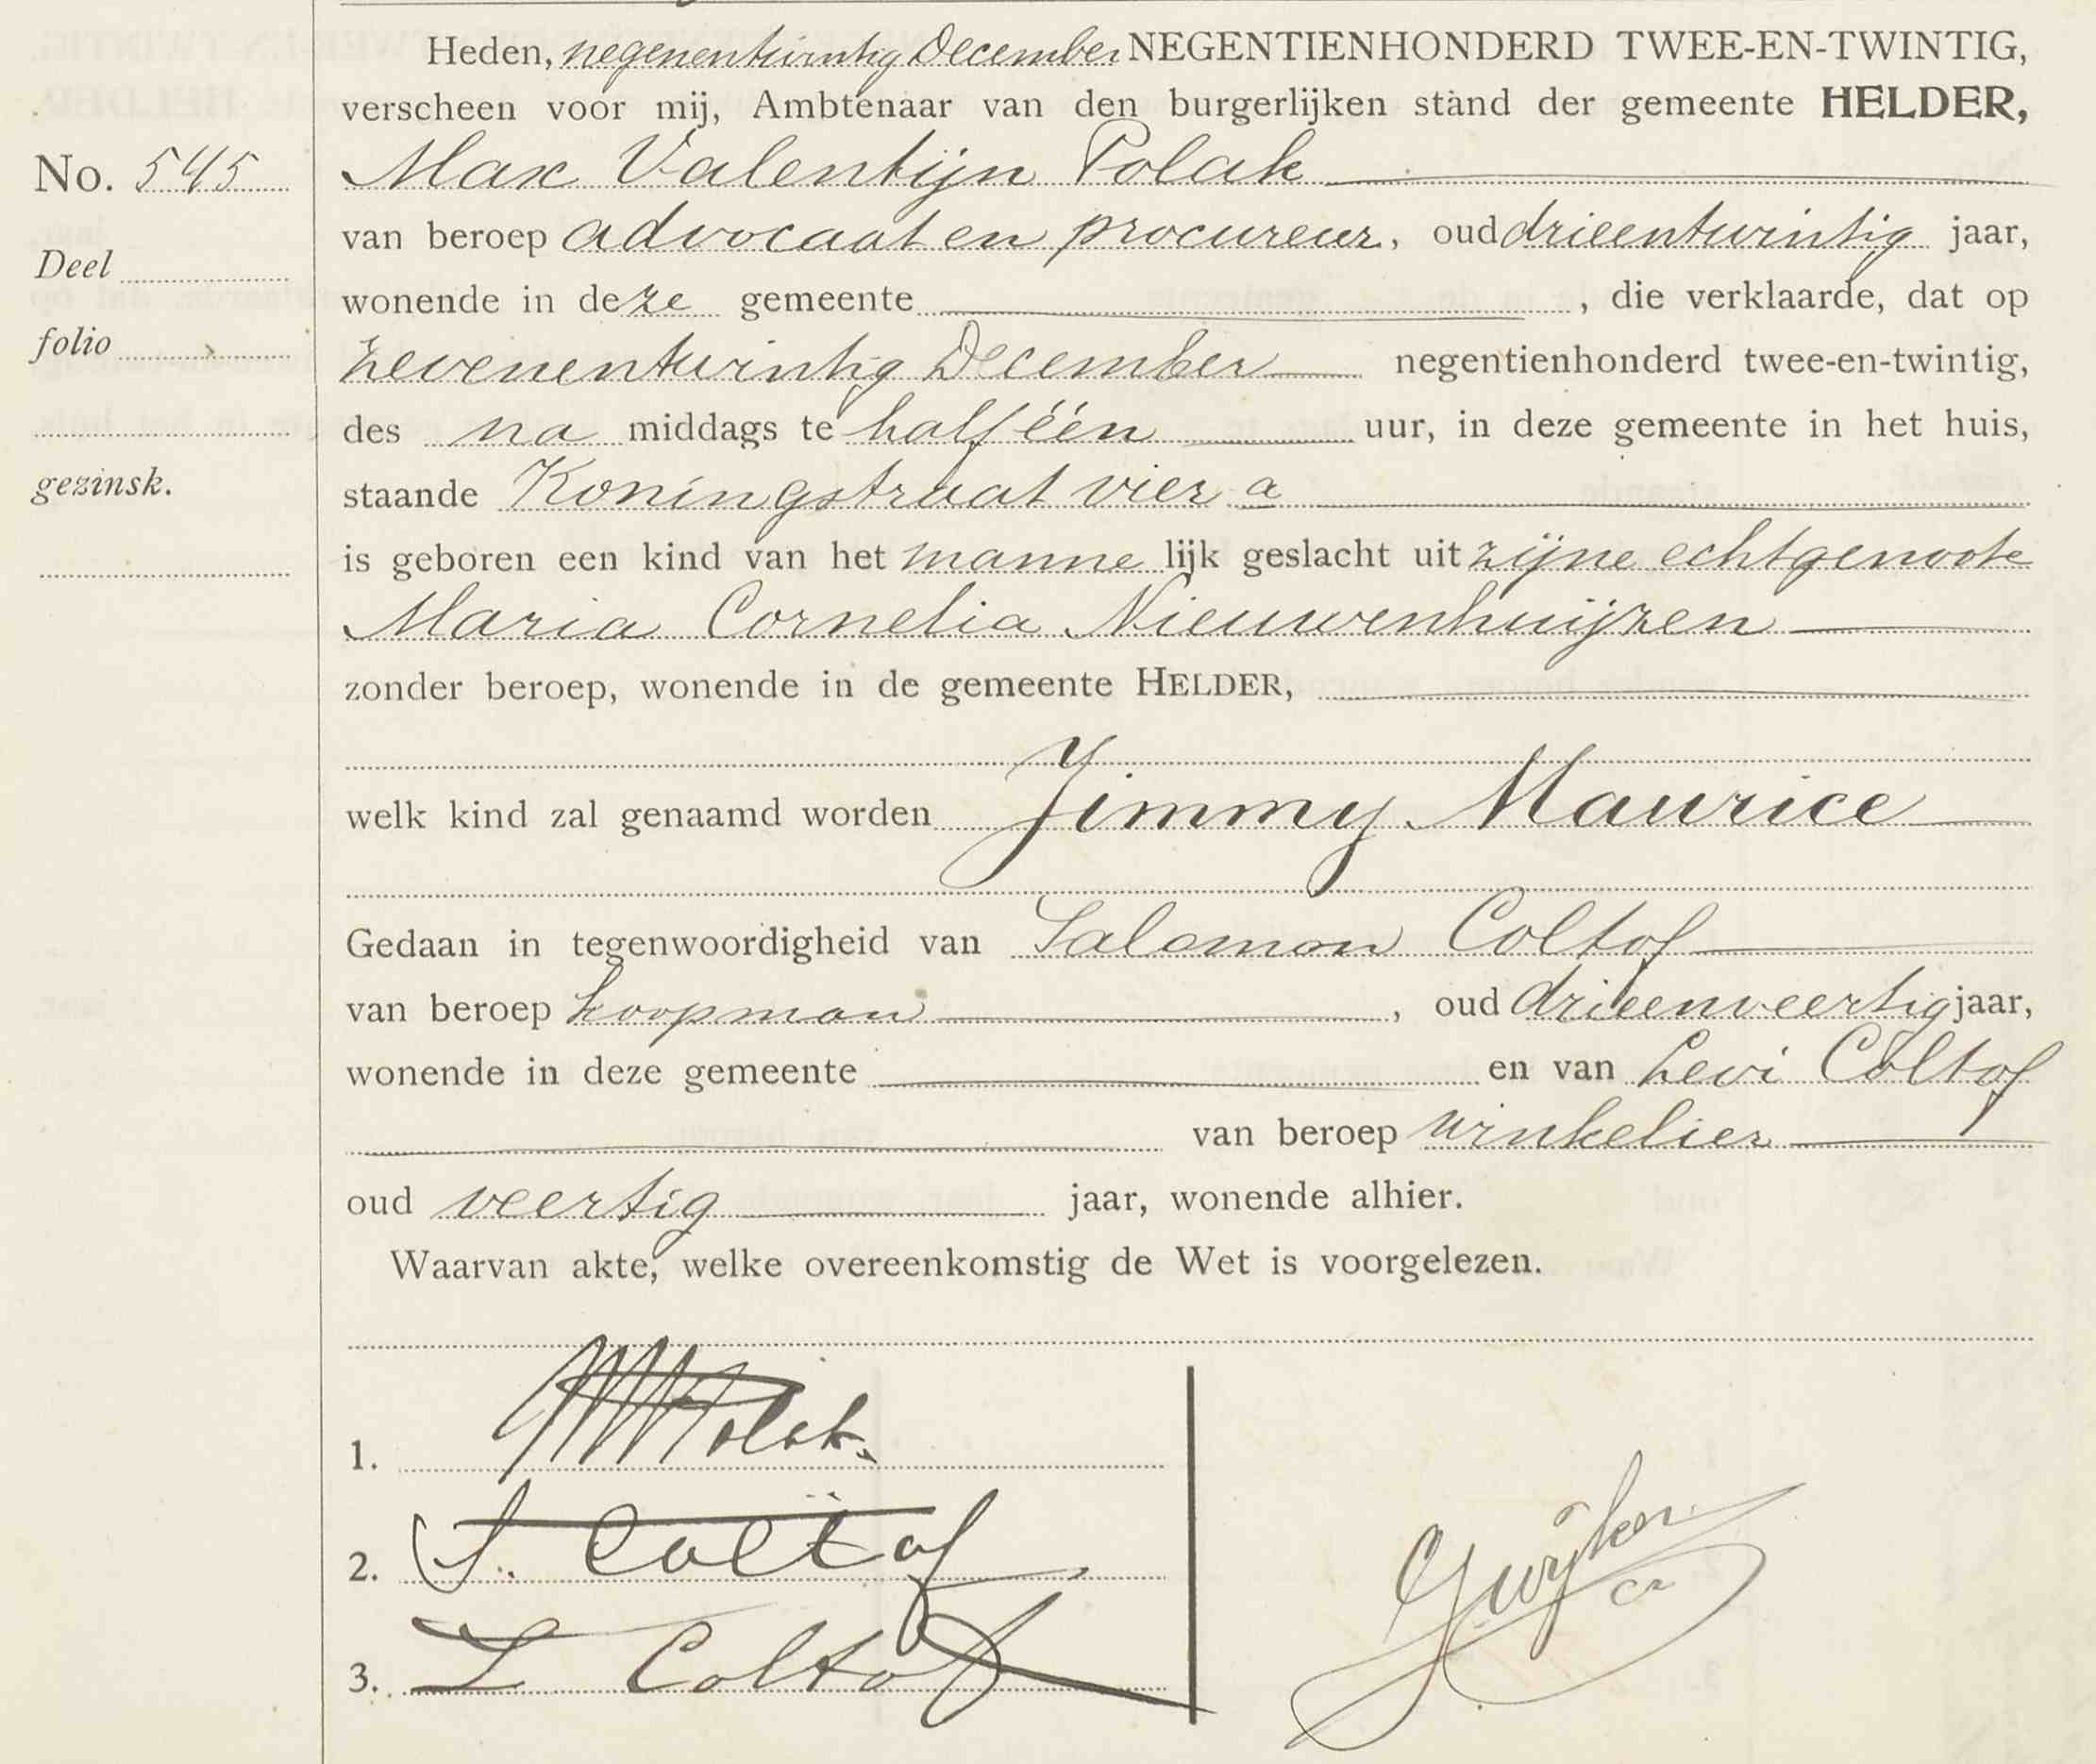 Heden, negenentwintig December NEGENTIENHONDERD TWEE-EN-TWINTIG,
verscheen voor mij, Ambtenaar van den burgerlijken stand der gemeente HELDER,
No. 545
Max Valentijn Polak
van beroep advocaat en procureur, oud drieentwintig jaar,
Deel
wonende in deze gemeente , die verklaarde, dat op
folio
zevenentwintig December negentienhonderd twee-en-twintig,
des na middags te half één uur, in deze gemeente in het huis,
gezinsk.
staande Koningstraat vier a
is geboren een kind van het mannelijk geslacht uit zijne echtgenoote
Maria Cornelia Nieuwenhuijzen
zonder beroep, wonende in de gemeente HELDER,
welk kind zal genaamd worden Jimmy Maurice
Gedaan in tegenwoordigheid van Salomon Coltof
van beroep koopman , oud drieenveertig jaar,
wonende in deze gemeente en van Levi Coltof
van beroep winkelier
oud veertig jaar, wonende alhier.
Waarvan akte, welke overeenkomstig de Wet is voorgelezen.
1. Polak.
2. S. Coltof
3. L Coltof